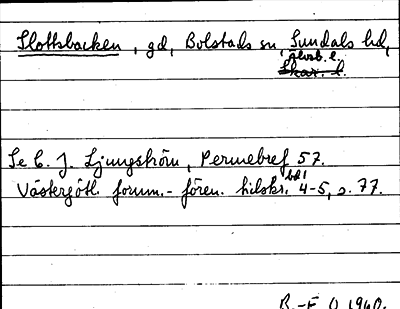 Slottsbacken, gd, Bolstads sn, Sundals hd,
Älvsb. l.
Skar. l.
Se C. J. Ljungström, Permebref 57.
Västergötl. fornm.-fören. tidskr. bd 1 4-5, s. 77.
R.-F. O. 1940.